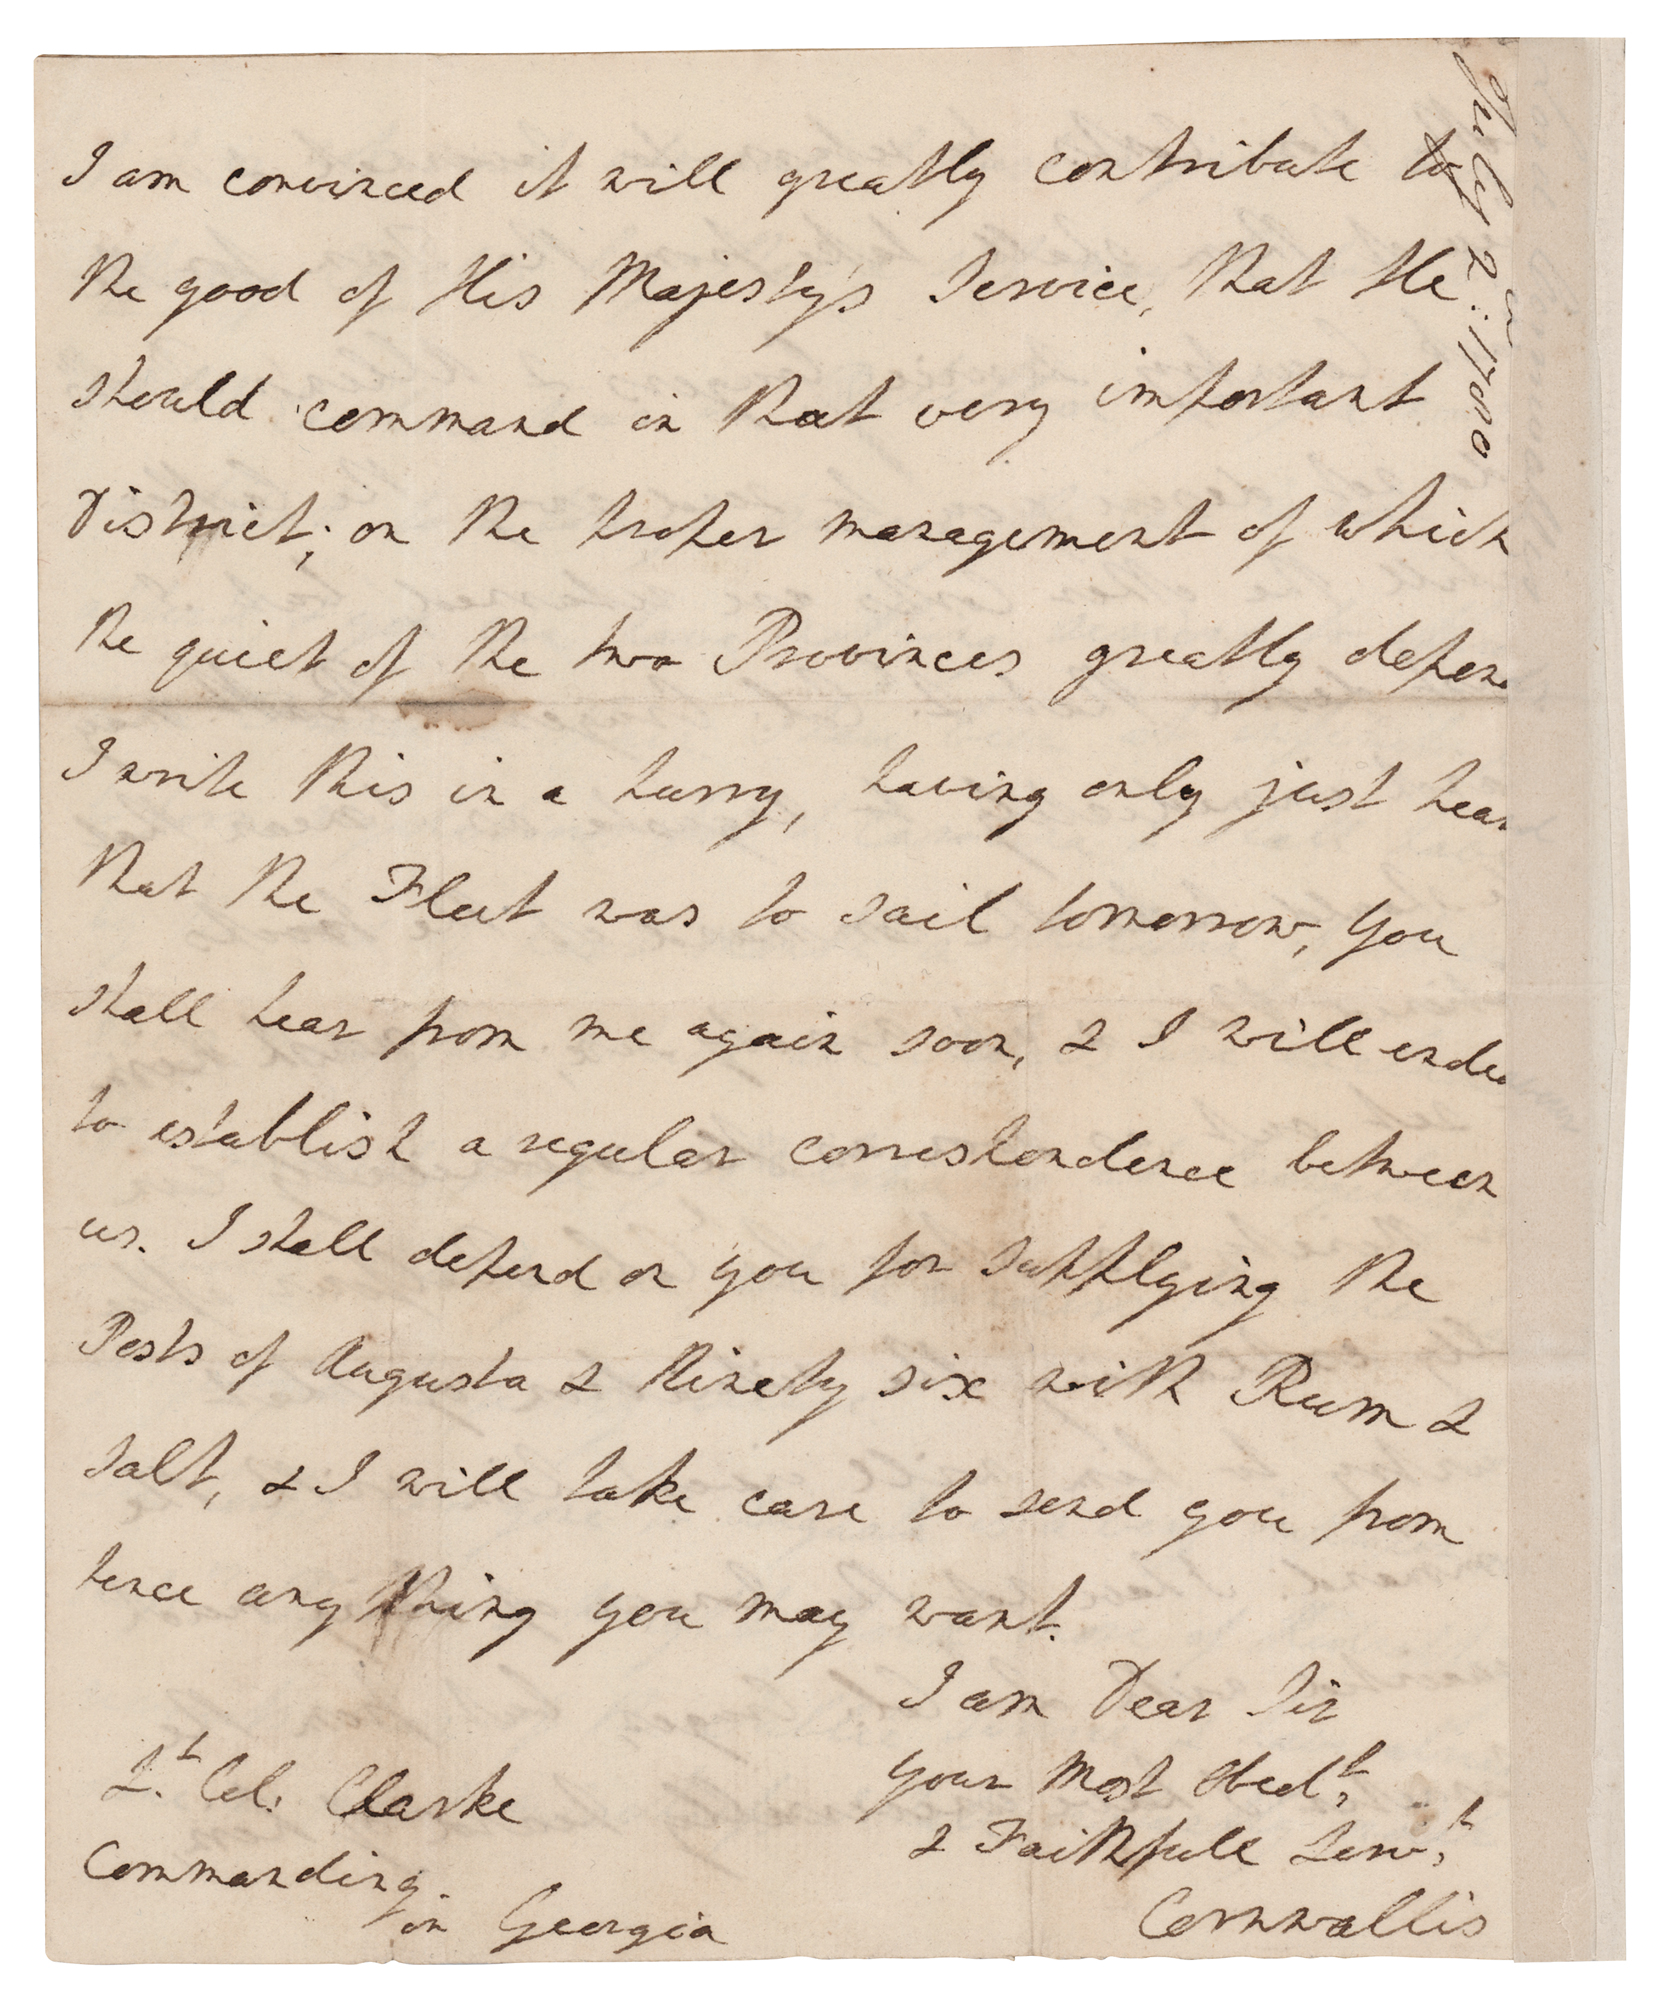 July 2d: 1780
I am convinced it will greatly contribute to
the good of His Majesty's Service, that He
should command in that very important
District; on the proper management of which
the quiet of the two Provinces greatly depen
I write this in a hurry, having only just hear
that the Fleet was to sail tomorrow, you
shall hear from me again soon, & I will endea
to establish a regular correspondence between
us. I shall depend on you for supplying the
Posts of Augusta & Ninety six with Rum &
salt, & I will take care to send you from
hence any thing you may want.
I am Dear Sir
your most Obedt,
& Faithfull Servt,
Cornwallis
Lt. Col: Clarke
Commanding
in Georgia